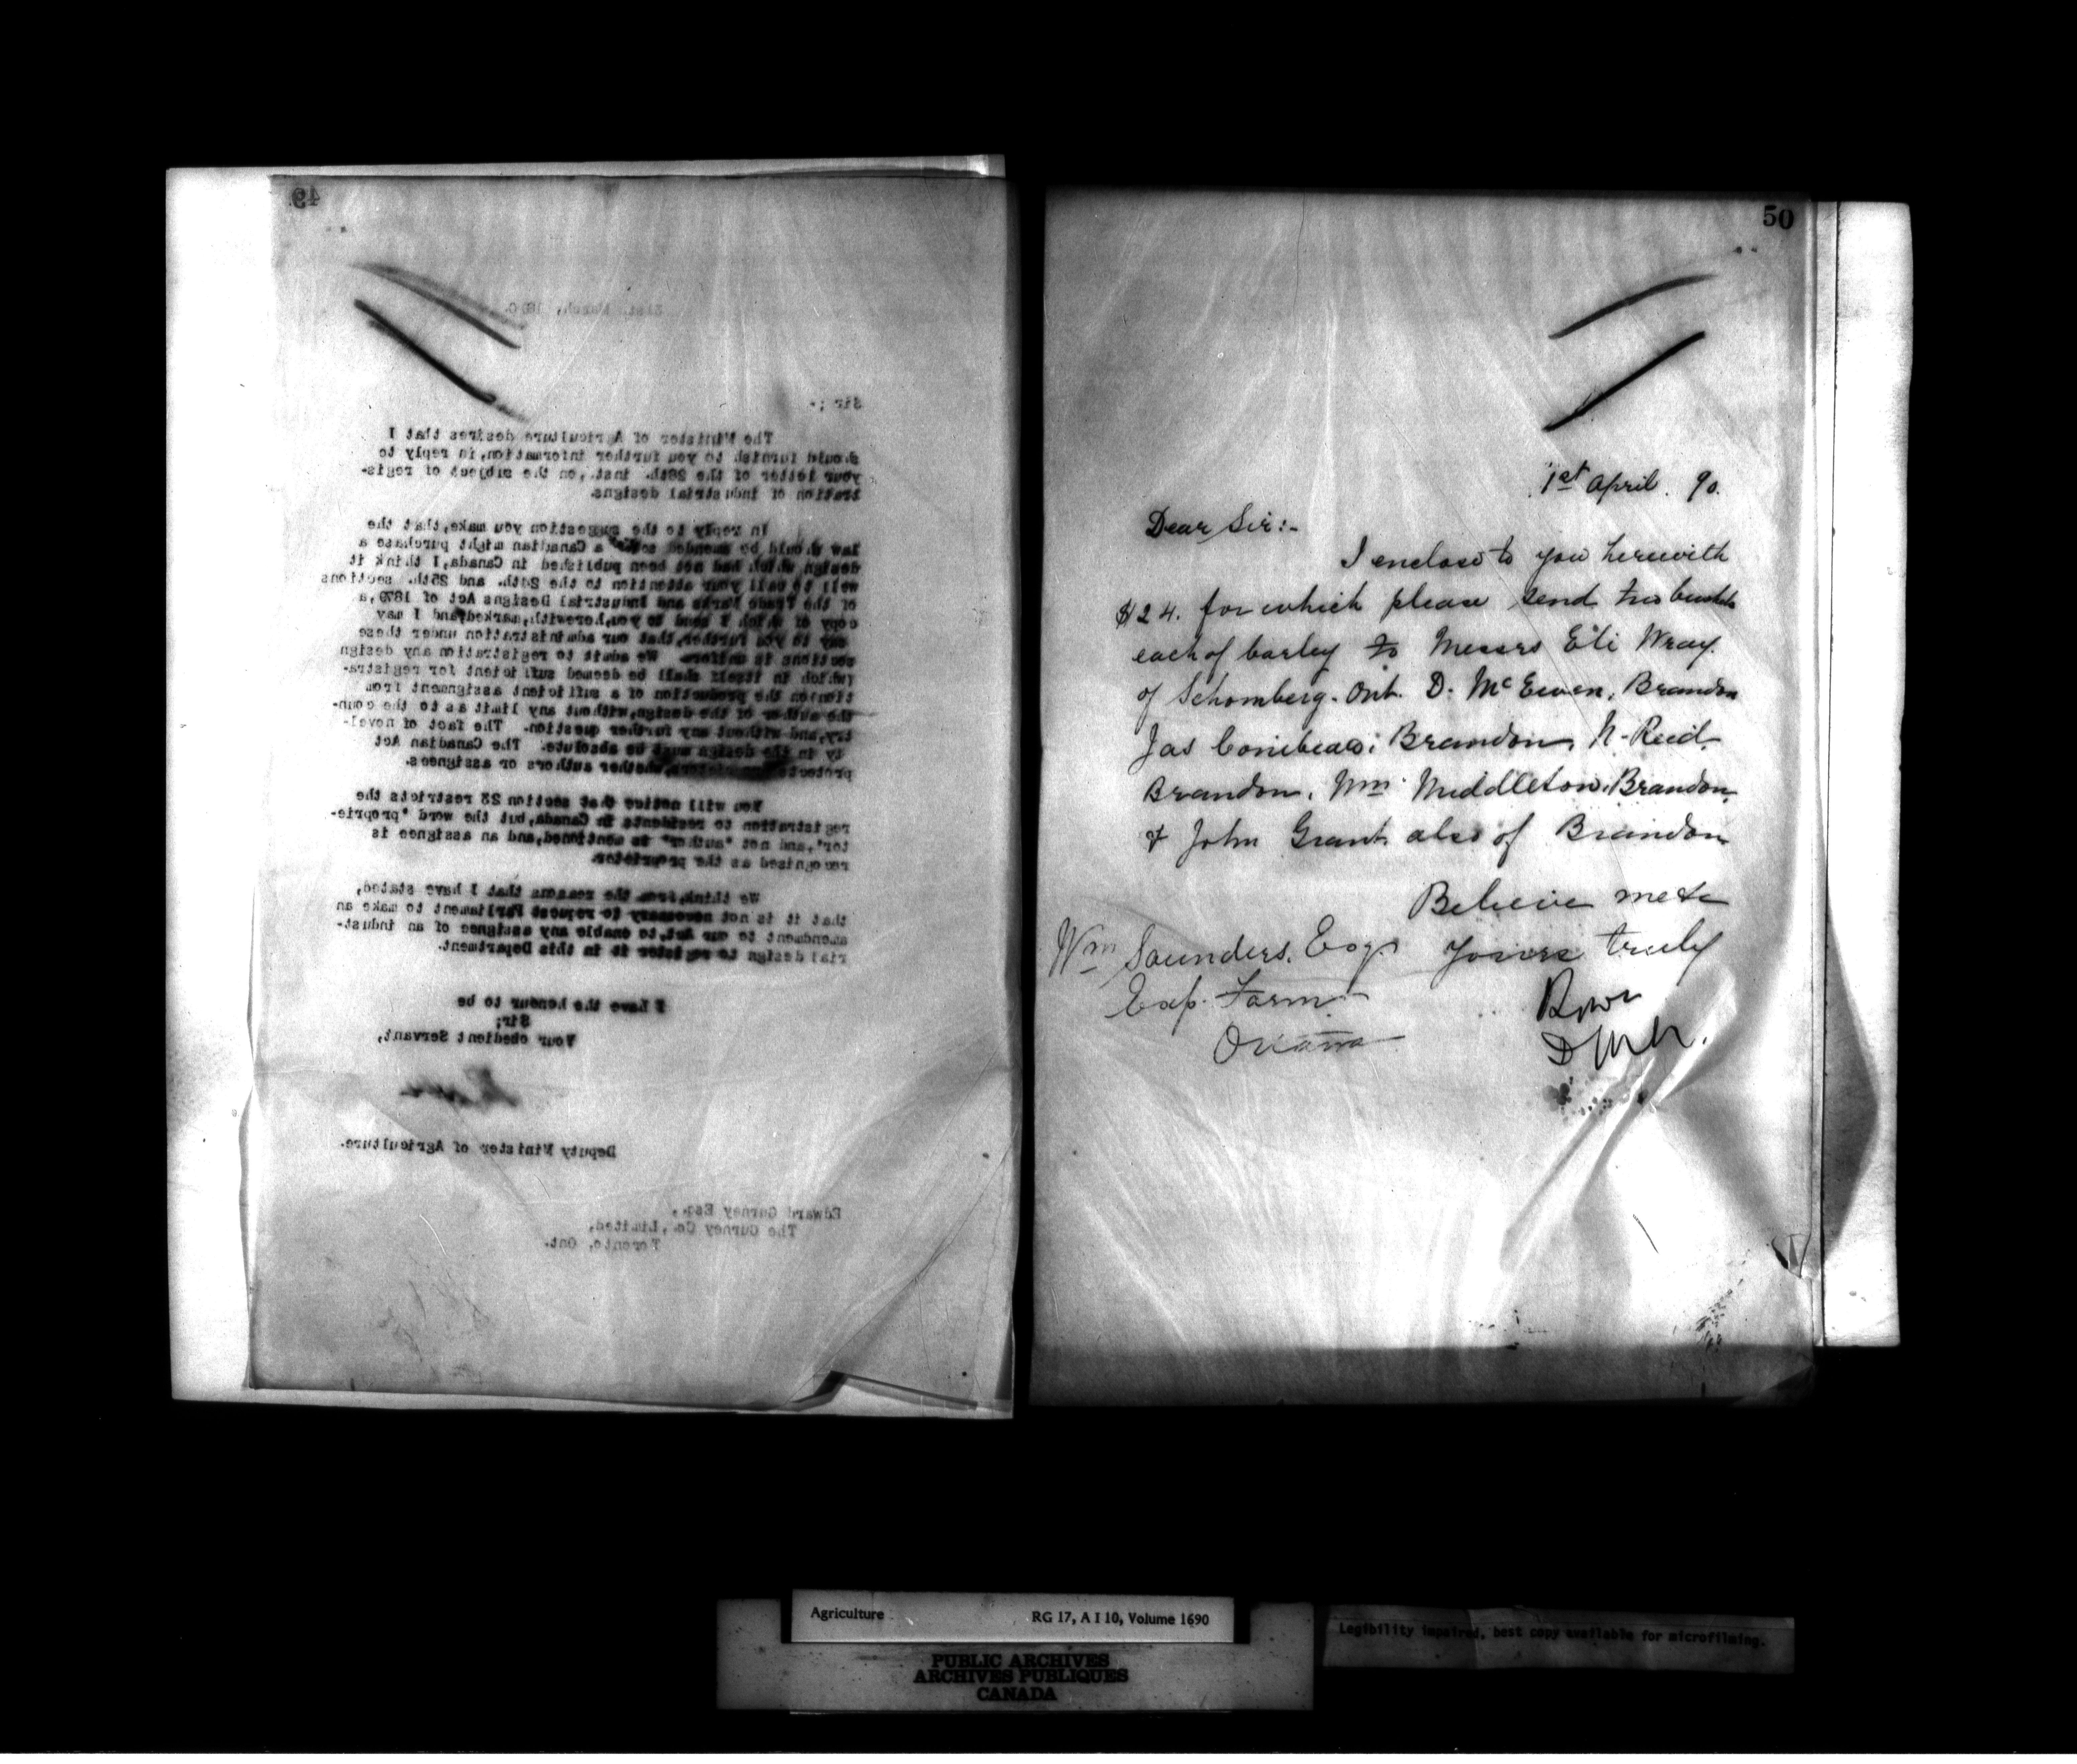 49
31st. March, 1890.
Sir ;-
The Minister of Agriculture desires that I
should furnish to you further information, in reply to
your letter of the 28th. inst., on the subject of regis-
tration of industrial designs.
In reply to the suggestion you make, that the
law should be amended so a Canadian might purchase a
design which had not been published in Canada, I think it
well to call your attention to the 24th. and 25th. sections
of the Trade Marks and Industrial Designs Act of 1879, a
copy of which I send to you, herewith, marked, and I may
say to you further, that our administration under these
sections is uniform. We admit to registration any design
(which in itself shall be deemed sufficient for registra-
tion) on the production of a sufficient assignment from
the author of the design, without any limit as to the coun-
try, and without any further question. The fact of novel-
ty in the design must be absolute. The Canadian Act
protects whether authors or assignees.
You will notice that section 23 restricts the
registration to residents in Canada, but the word "proprie-
tor", and not "author" is mentioned, and an assignee is
recognised as the proprietor.
We think, from the reasons that I have stated,
that it is not necessary to request Parliament to make an
amendment to our Act, to enable any assignee of an indust-
rial design to register it in this Department.
I have the honour to be
Sir;
Your obedient Servant,
Deputy Minister of Agriculture.
Edward Gurney Esq.,
The Gurney Co., Limited,
Toronto, Ont.
50
1st April. 90.
Dear Sir:-
I enclose to you herewith
$24. for which please send two bushels
each of barley to Messrs Eli Wray
of Schomberg. Ont. D. McEwen, Brandon
Jas Conibear; Brandon, N. Reid
Brandon, Wm Middleton, Brandon,
& John Grant also of Brandon
Believe me to
Yours truly
Wm Saunders, Esq.
Exp. Farm
Ottawa
Agriculture RG 17, A I 10, Volume 1690
PUBLIC ARCHIVES
ARCHIVES PUBLIQUES
CANADA
Legibility impaired, best copy available for microfilming.